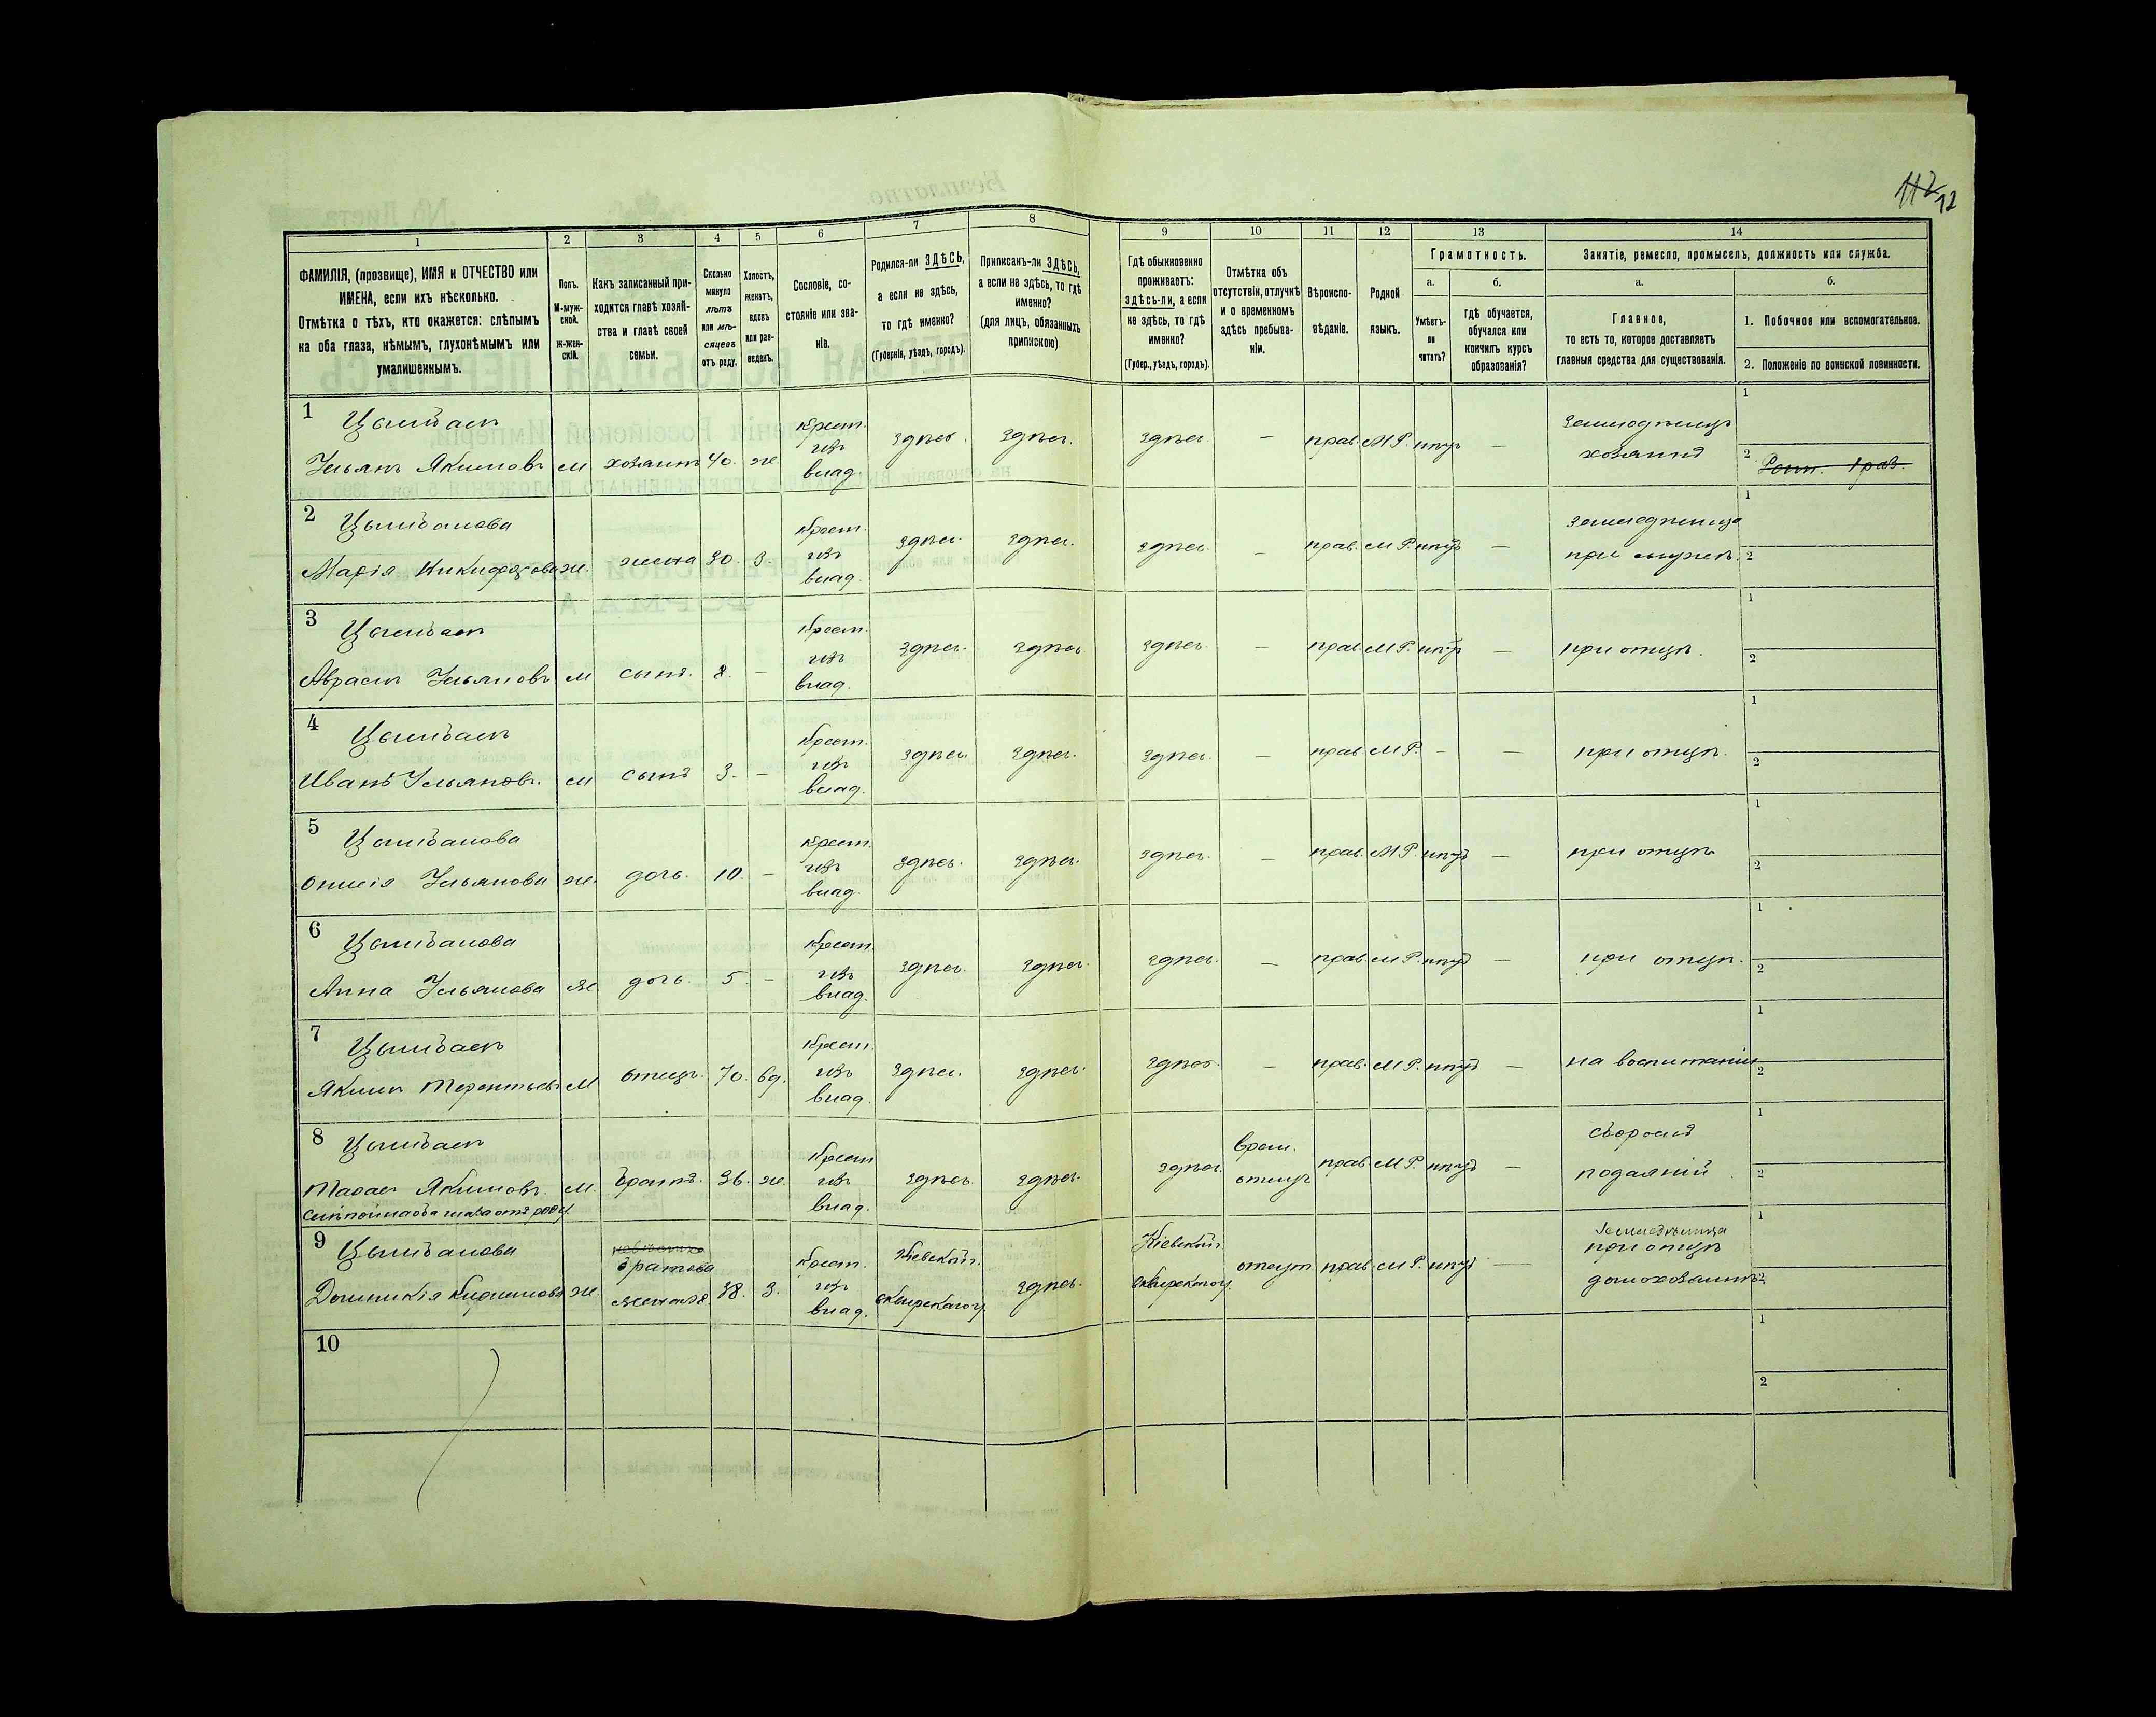 112 12
1 2 3 4 5 6 7 8 9 10 11 12 13 14
ФАМИЛІЯ, (прозвище), ИМЯ и ОТЧЕСТВО или
ИМЕНА, если ихъ нѣсколько.
Отмѣтка о тѣхъ, кто окажется: слѣпымъ
на оба глаза, нѣмымъ, глухонѣмымъ или
умалишеннымъ.
Полъ.
М-муж-
ской.
ж-жен-
скій.
Какъ записанный при-
ходится главѣ хозяй-
ства и главѣ своей
семьи.
Сколько
минуло
лѣтъ
или мѣ-
сяцевъ
отъ роду.
Холостъ,
женатъ,
вдовъ
или раз-
веденъ.
Сословіе, со-
стояніе или зва-
ніе.
Родился-ли ЗДѢСЬ,
а если не здѣсь,
то гдѣ именно?
(Губернія, уѣздъ, городъ).
Приписанъ-ли ЗДѢСЬ,
а если не здѣсь, то гдѣ
именно?
(для лицъ, обязанныхъ
припискою)
Гдѣ обыкновенно
проживаетъ:
здѣсь-ли, а если
не здѣсь, то гдѣ
именно?
(Губер., уѣздъ, городъ).
Отмѣтка объ
отсутствіи, отлучкѣ
и о временномъ
здѣсь пребыва-
ніи.
Вѣроиспо-
вѣданіе.
Родной
языкъ.
Грамотность.
а.
Умѣетъ-
ли
читать?
б.
гдѣ обучается,
обучался или
кончилъ курсъ
образованія?
Занятіе, ремесло, промыселъ, должность или служба.
а.
Главное,
то есть то, которое доставляетъ
главныя средства для существованія.
б.
1. Побочное или вспомогательное.
2. Положеніе по воинской повинности.
1 Цымбалъ крест. земледѣлецъ 1
Ульянъ Якимовъ м хозяинъ 40. ж. изъ здѣсь. здѣсь. здѣсь – прав. М Р. нѣтъ – хозяинъ 2
влад.
2 Цымбалова крест. 1
Марія Никифорова ж. жена 30. З. изъ здѣсь. здѣсь. здѣсь. – прав. М Р. нѣтъ – при мужѣ. 2
влад.
3 Цымбалъ крест. 1
Абрамъ Ульяновъ м сынъ. 8. – изъ здѣсь. здѣсь здѣсь – прав. М Р. нѣтъ – при отцѣ. 2
влад.
4 Цымбалъ крест. 1
Иванъ Ульяновъ. м сынъ 3. – изъ здѣсь здѣсь. здѣсь. – прав. М Р. – – при отцѣ. 2
влад.
5 Цымбалова крест. 1
Ульянова ж. дочь. 10. – изъ здѣсь. здѣсь. здѣсь. – прав. М Р. нѣтъ – при отцѣ 2
влад.
6 Цымбалова крест. 1
Анна Ульянова ж дочь. 5. – изъ здѣсь. здѣсь. здѣсь. – прав. М Р. нѣтъ – при отцѣ. 2
влад.
7 Цымбалъ крест. 1
Якимъ Терентьевъ м отецъ. 70. вд. изъ здѣсь. здѣсь. здѣсь. – прав. М Р. нѣтъ – на воспитаніи 2
влад.
8 Цымбалъ крест врем. сборомъ 1
Тарасъ Якимовъ. м. братъ. 36. ж. изъ здѣсь. здѣсь. здѣсь. отлуч прав. М Р. нѣтъ – подаяній 2
слѣпой на оба глаза отъ роду. влад.
9 Цымбалова братова крест. Кіевской г. Кіевской г. земледѣлица 1
при отцѣ
Домникія ж. жена 38. З. изъ Сквирскаго у. здѣсь. Сквирскаго у. отлуч прав. М Р. нѣтъ – домохозяина 2
влад.
10 1
2